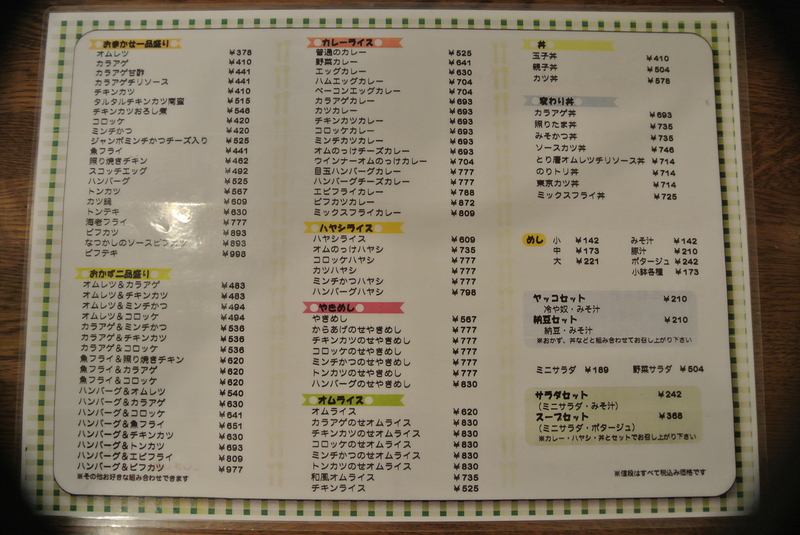 おまかせ一品盛り
オムレツ ¥378
カラアゲ ¥410
カラアゲ甘酢 ¥441
カラアゲチリソース ¥441
チキンカツ ¥410
タルタルチキンカツ南蛮 ¥515
チキンカツおろし煮 ¥546
コロッケ ¥420
ミンチかつ ¥420
ジャンボミンチかつチーズ入り ¥525
魚フライ ¥441
照り焼きチキン ¥462
スコッチエッグ ¥492
ハンバーグ ¥525
トンカツ ¥567
カツ鍋 ¥609
トンテキ ¥630
海老フライ ¥777
ビフカツ ¥893
なつかしのソースビフカツ ¥893
ビフテキ ¥998
おかず二品盛り
オムレツ&カラアゲ ¥483
オムレツ&チキンカツ ¥483
オムレツ&ミンチかつ ¥494
オムレツ&コロッケ ¥494
カラアゲ&ミンチかつ ¥536
カラアゲ&チキンカツ ¥536
カラアゲ&コロッケ ¥536
魚フライ&照り焼きチキン ¥620
魚フライ&カラアゲ ¥620
魚フライ&コロッケ ¥620
ハンバーグ&オムレツ ¥540
ハンバーグ&カラアゲ ¥630
ハンバーグ&コロッケ ¥641
ハンバーグ&魚フライ ¥651
ハンバーグ&チキンカツ ¥630
ハンバーグ&トンカツ ¥693
ハンバーグ&エビフライ ¥809
ハンバーグ&ビフカツ ¥977
※その他お好きな組み合わせできます
カレーライス
普通のカレー ¥525
野菜カレー ¥641
エッグカレー ¥630
ハムエッグカレー ¥704
ベーコンエッグカレー ¥704
カラアゲカレー ¥693
カツカレー ¥693
チキンカツカレー ¥693
コロッケカレー ¥693
ミンチカツカレー ¥693
オムのっけチーズカレー ¥693
ウインナーオムのっけカレー ¥704
目玉ハンバーグカレー ¥777
ハンバーグチーズカレー ¥777
エビフライカレー ¥788
ビフカツカレー ¥872
ミックスフライカレー ¥809
ハヤシライス
ハヤシライス ¥609
オムのっけハヤシ ¥735
コロッケハヤシ ¥777
カツハヤシ ¥777
ミンチかつハヤシ ¥777
ハンバーグハヤシ ¥798
やきめし
やきめし ¥567
からあげのせやきめし ¥777
チキンカツのせやきめし ¥777
コロッケのせやきめし ¥777
ミンチかつのせやきめし ¥777
トンカツのせやきめし ¥777
ハンバーグのせやきめし ¥830
オムライス
オムライス ¥620
カラアゲのせオムライス ¥830
チキンカツのせオムライス ¥830
コロッケのせオムライス ¥830
ミンチかつのせオムライス ¥830
トンカツのせオムライス ¥830
和風オムライス ¥735
チキンライス ¥525
丼
玉子丼 ¥410
親子丼 ¥504
カツ丼 ¥578
変わり丼
カラアゲ丼 ¥693
照りたま丼 ¥735
みそかつ丼 ¥735
ソースカツ丼 ¥746
とり唐オムレツチリソース丼 ¥714
のりトリ丼 ¥714
東京カツ丼 ¥714
ミックスフライ丼 ¥725
めし 小 ¥142 みそ汁 ¥142
中 ¥173 豚汁 ¥210
大 ¥221 ポタージュ ¥242
小鉢各種 ¥173
ヤッコセット ¥210
冷や奴・みそ汁
納豆セット ¥210
納豆・みそ汁
※おかず、丼などと組み合わせてお召し上がり下さい
ミニサラダ ¥189 野菜サラダ ¥504
サラダセット ¥242
(ミニサラダ・みそ汁)
スープセット ¥368
(ミニサラダ・ポタージュ)
※カレー・ハヤシ・丼とセットでお召し上がり下さい
※値段はすべて税込み価格です